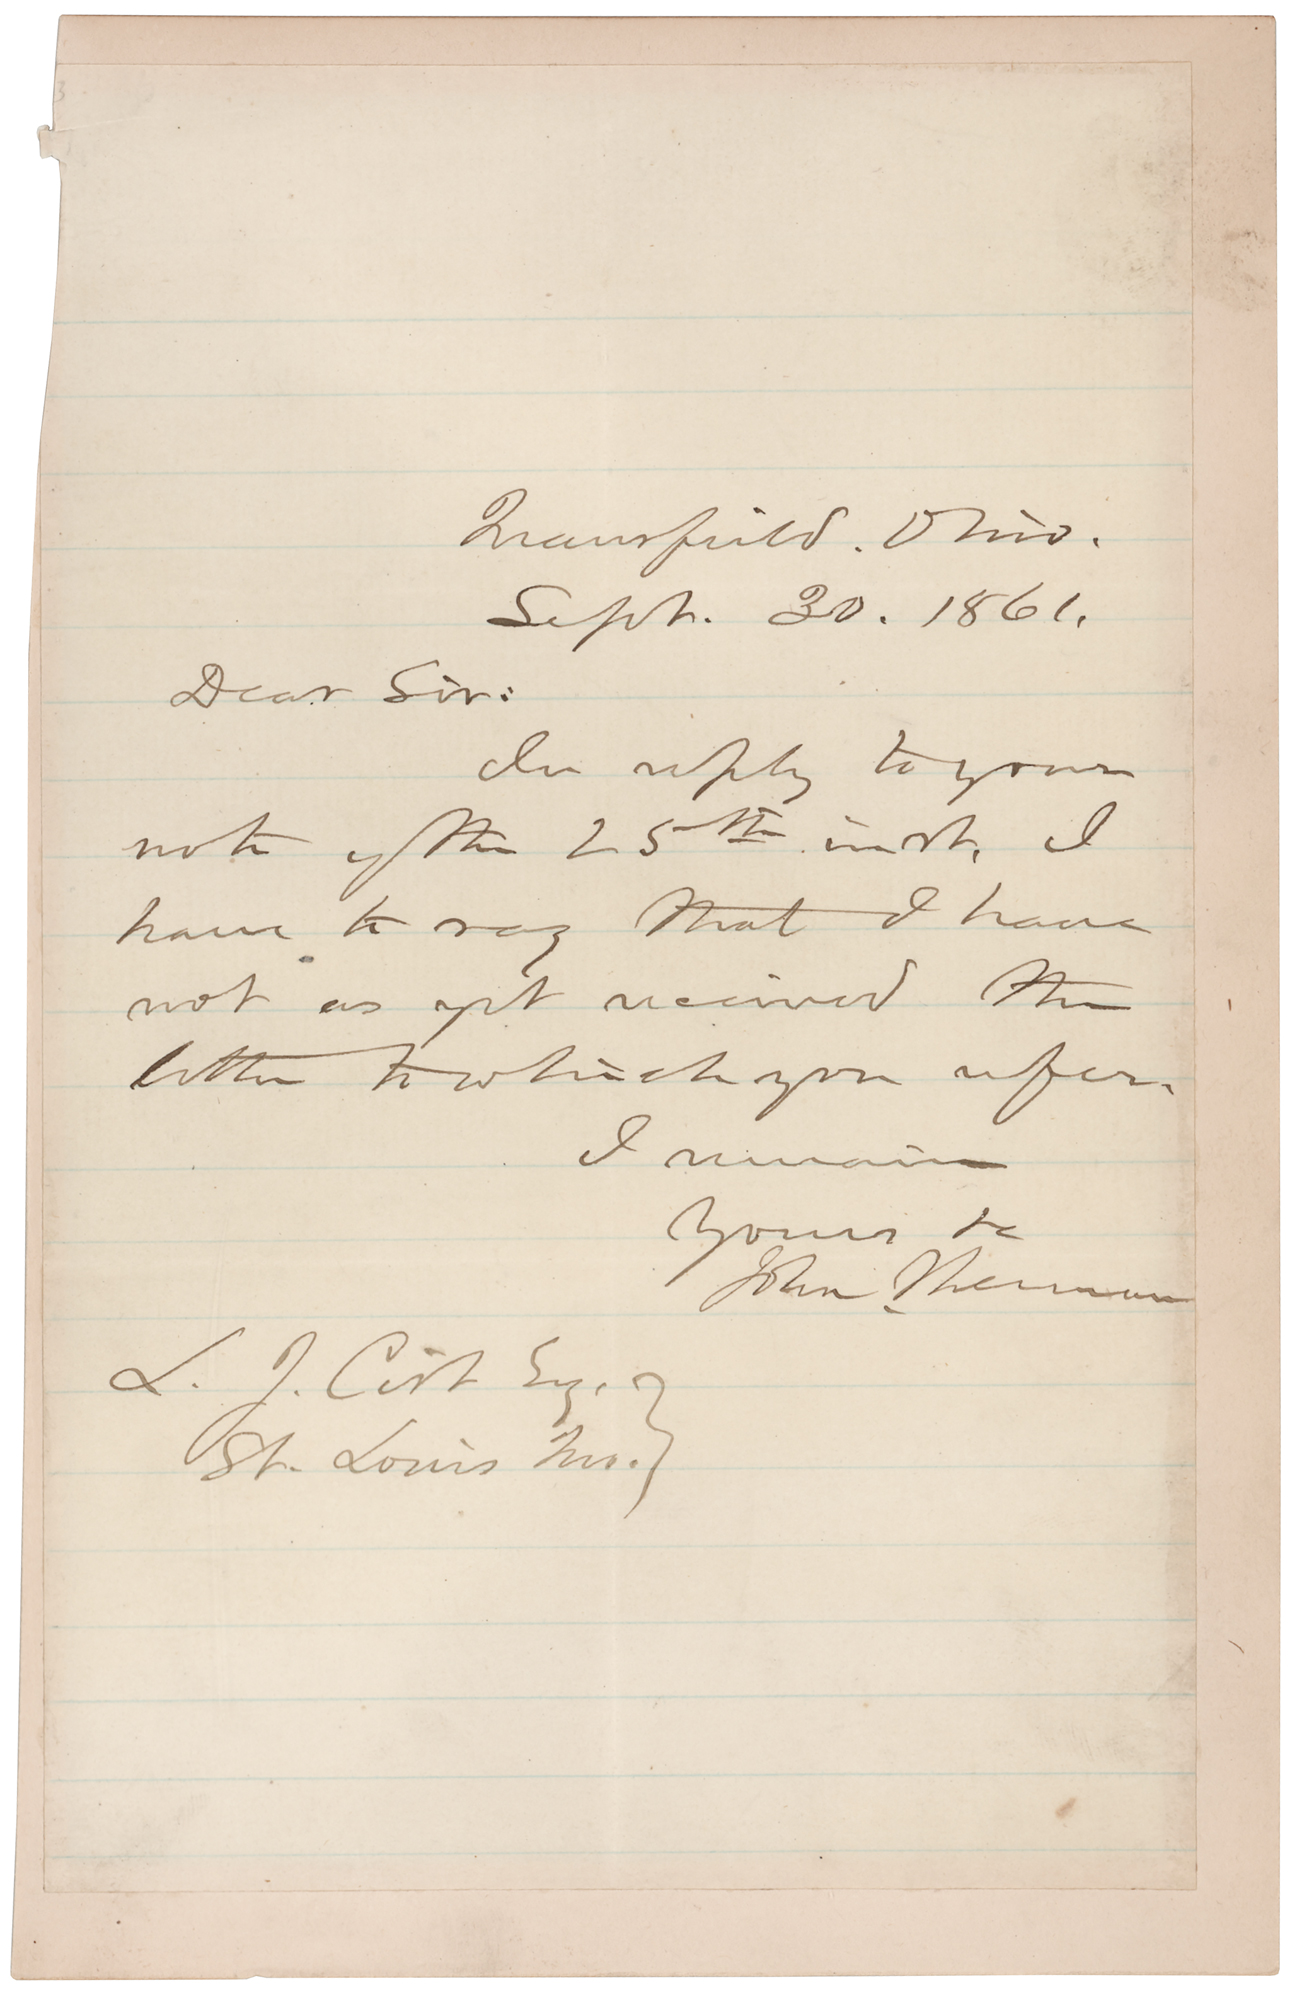 Mansfield. Ohio.
Sept. 30. 1861.
Dear Sir:
In reply to your
note of the 25th inst, I
have to say that I have
not as yet received the
letter to which you refer.
I remain
Yours &c
John Sherman
L. J. Cist Esq.
St. Louis Mo.